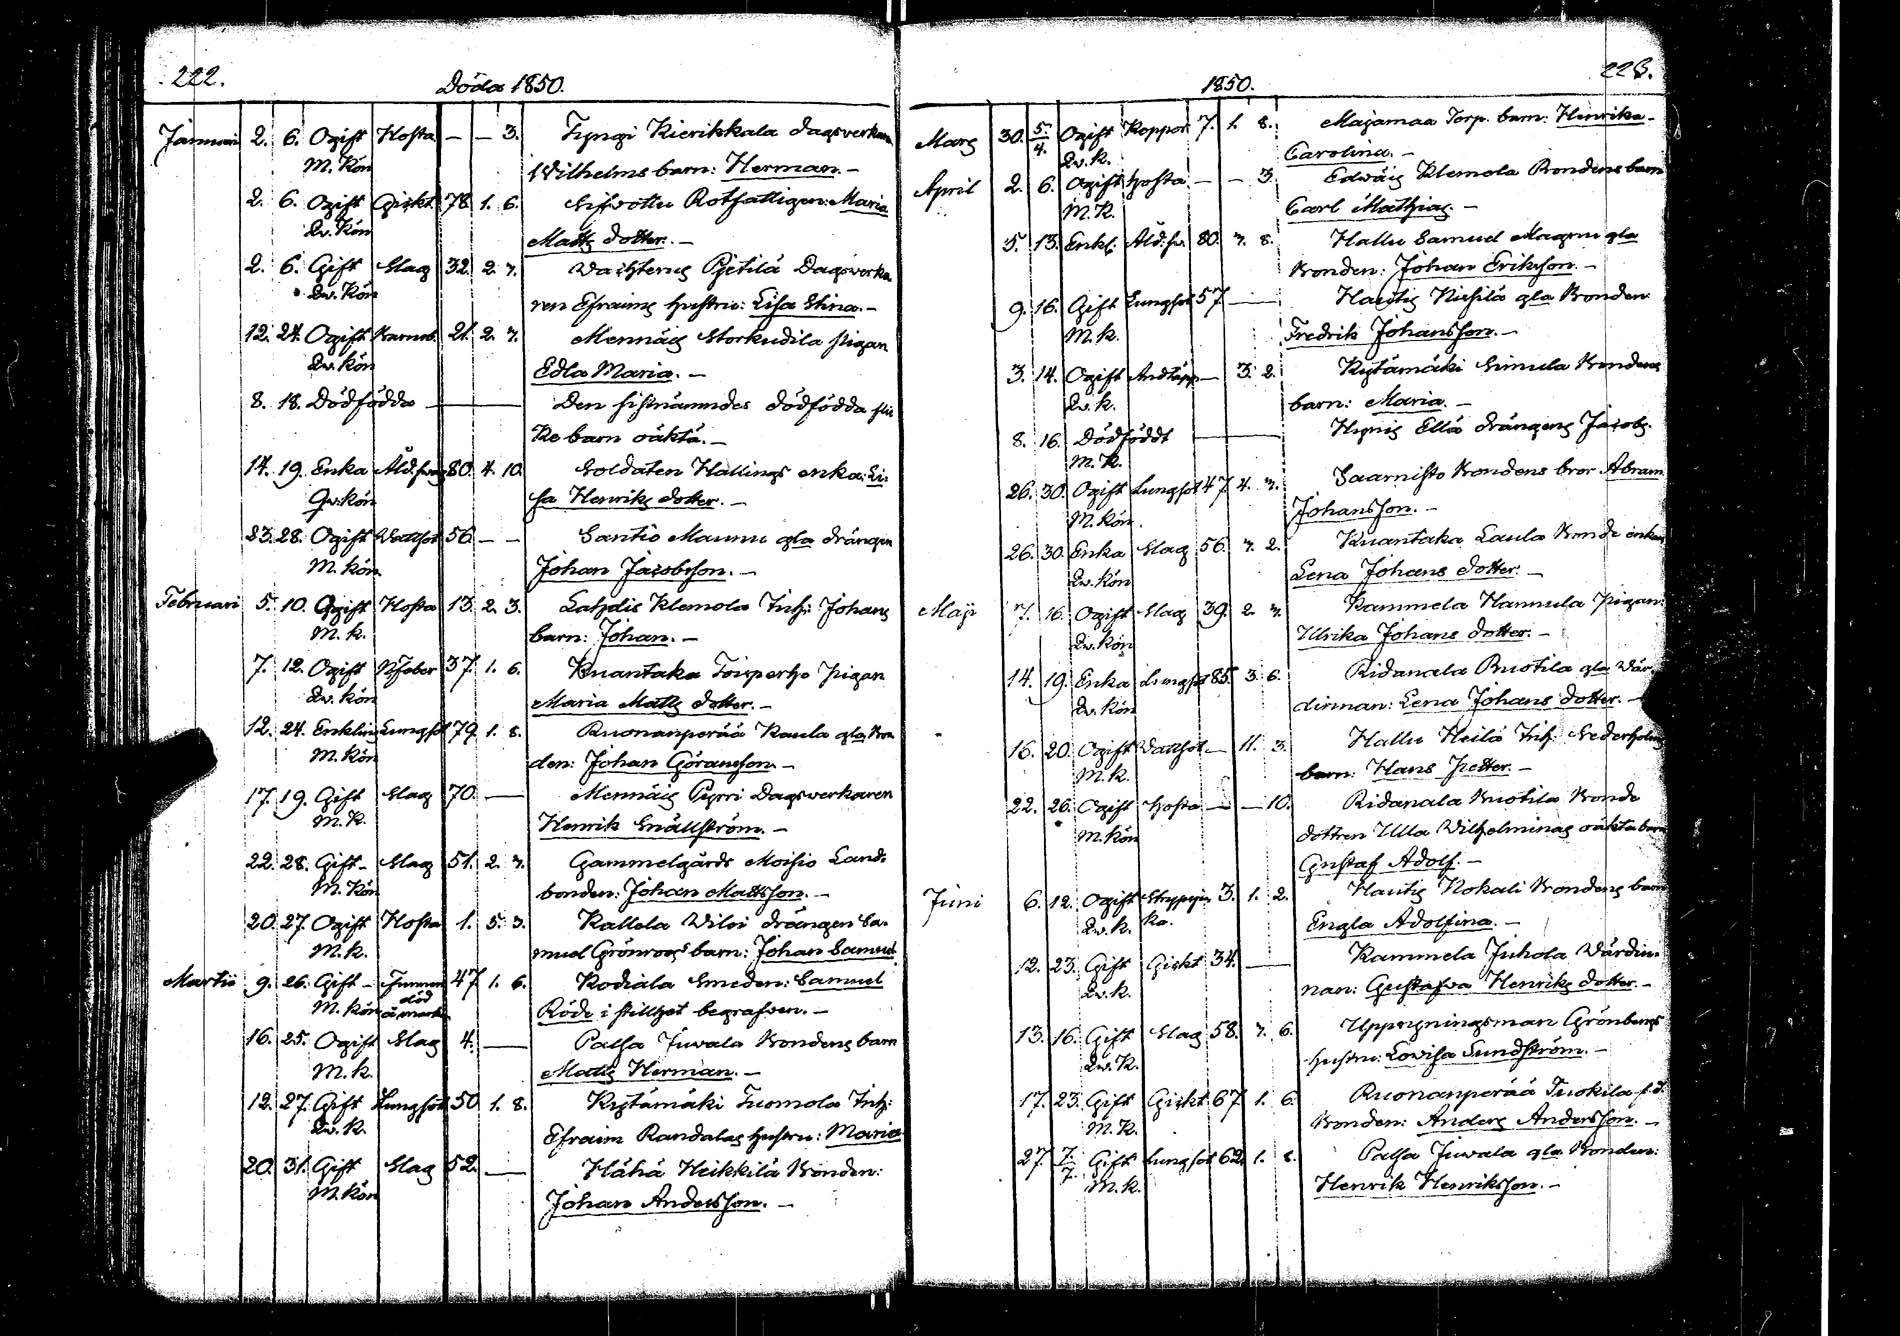 222.
Döda 1850.
Januari 2. 6. Ogift Hosta — — 3. Tyngi Kierikkala dagsverkarn
M. Kön Wilhelms barn: Herman. —
2. 6. Ogift Gickt 78 1. 6. Rotfattigen: Maria
Qv. Kön Matts dotter. —
2. 6. Gift Slag 32. 2. 7. Pietilä Dagsverka
Qv. Kön ren Efraims hustru: Lisa Stina. —
12. 24. Ogift 21. 2. 7. Mennäis Storkudila pigan
Qv. Kön Edla Maria. —
8. 18. Dödfödda — Den dödfödda
barn oäkta. —
14. 19. Enka Åld.svag 80. 4. 10. Soldaten Hallings enka: Li-
Qv. Kön sa Henriks dotter. —
23. 28. Ogift Wattsot 56 — — Santio Maunu gla drängen
M. Kön Johan Jacobsson. —
Februari 5. 10. Ogift Hosta 13. 2. 3. Lahdis Klemola Inh: Johans
M. k. barn: Johan. —
7. 12. Ogift N.feber 37. 1. 6. Kuantaka pigan
Qv. kön Maria Matts dotter. —
12. 24. Enkling Lungsot 79. 1. 8. Ruonanperää Kaula gla Bon
M. Kön den: Johan Göransson. —
17. 19. Gift Slag 70. — Mennäis Pyrri Dagsverkaren
M. K. Henrik Snällström. —
22. 28. Gift — Slag 51. 2. 7. Gammelgårds Moisio Land-
M. Kön bonden: Johan Mattsson. —
20. 27. Ogift Hosta 1. 5. 3. Kallela Wilni drängen Sa-
M. k. muel Grönroos barn: Johan Samuel
Martii 9. 26. Gift — Funnen 47 1. 6. Kodiala Smeden: Samuel
död
M. Kön å marken Röde i stillhet begrafven. —
16. 25. Ogift Slag 4. — Palsa Juvala Bondens barn
M. k. Matts Herman. —
12. 27. Gift Lungsot 50 1. 8. Kytämäki Tuomola Inh:
Qv. K. Efraim Randalas hustru: Maria
20. 31. Gift Slag 52. — Hähä Heikkilä Bonden:
M. Kön Johan Andersson. —
223.
1850.
Mars 30. 5/4. Ogift Koppor 7. 1. 8. Majamaa Torp. barn: Henrika
Qv. k. Carolina. —
April 2. 6. Ogift Hosta — — 3. Edväis Klemola Bondens barn
M. K. Carl Mathias. —
5. 13. Enkl. Åld.sv. 80. 7. 8. Hallu Samuel Magnu gla
Bonden: Johan Eriksson. —
9. 16. Gift Lungsot 57. — Hautis Kiesilä gla Bonden
M. k. Fredrik Johansson. —
3. 14. Ogift Andtäpp — 3. 2. Kytämäki Simula Bondens
Qv. k. barn: Maria. —
8. 16. Dödföddt — Hypis Ellä drängens Jacobs.
M. K.
26. 30. Ogift Lungsot 47. 4. 7. Saarnisto Bondens bror Abram
M. Kön. Johansson. —
26. 30. Enka Slag 56. 7. 2. Kuantaka Laula Bonde enkan
Qv. Kön Lena Johans dotter. —
Maji 7. 16. Ogift Slag 39. 2. 7. Kammela Hannula pigan:
Qv. Kön Ulrika Johans dotter. —
14. 19. Enka Lungsot 85. 3. 6. Ridanala Buotila gla Vär-
Qv. Kön dinnan: Lena Johans dotter. —
16. 20. Ogift Wattsot — 11. 3. Hallu Heilä Inh: Sederholms
M. k. barn: Hans Petter. —
22. 26. Ogift Hosta — — 10. Ridanala Buotila Bonde
M. Kön dottren Ulla Wilhelminas oäkta barn
Gustaf Adolf. —
Juni 6. 12. Ogift Strypsju- 3. 1. 2. Hautis Kokali Bondens barn
Qv. k. ka. Engla Adolfina. —
12. 23. Gift Gickt 34. — Kammela Juhola Värdin-
Qv. k. nan: Gustafva Henriks dotter. —
13. 16. Gift Slag 58. 7. 6. Uppsyningsman Grönbergs
Qv. K. hustru: Lovisa Sundström. —
17. 23. Gift Gickt 67 1. 6. Ruonanperää Tuokila f.d.
M. K. Bonden: Anders Andersson. —
27. 7/7. Gift Lungsot 62. 1. 8. Palsa Juvala gla Bonden:
M. k. Henrik Henriksson. —